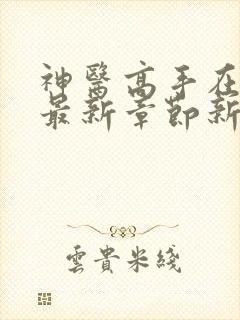 神醫高手在
最新章節新
雲貴米綫